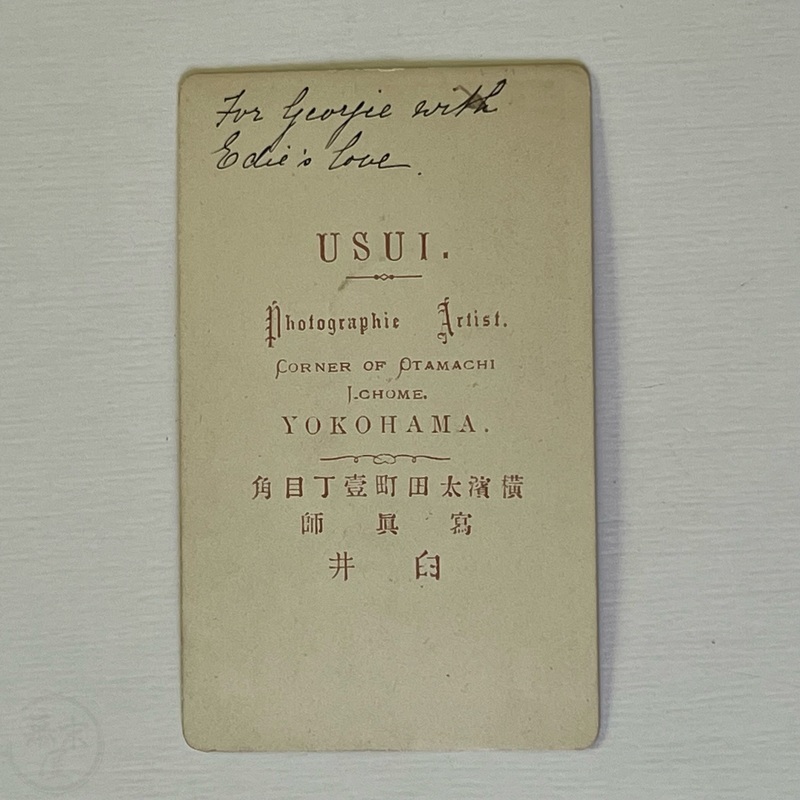 For Georgie with
Edie's love.
USUI.
Photographic Artist.
CORNER OF OTAMACHI
I.CHOME.
YOKOHAMA.
橫濱太田町壹丁目角
寫眞師
臼井